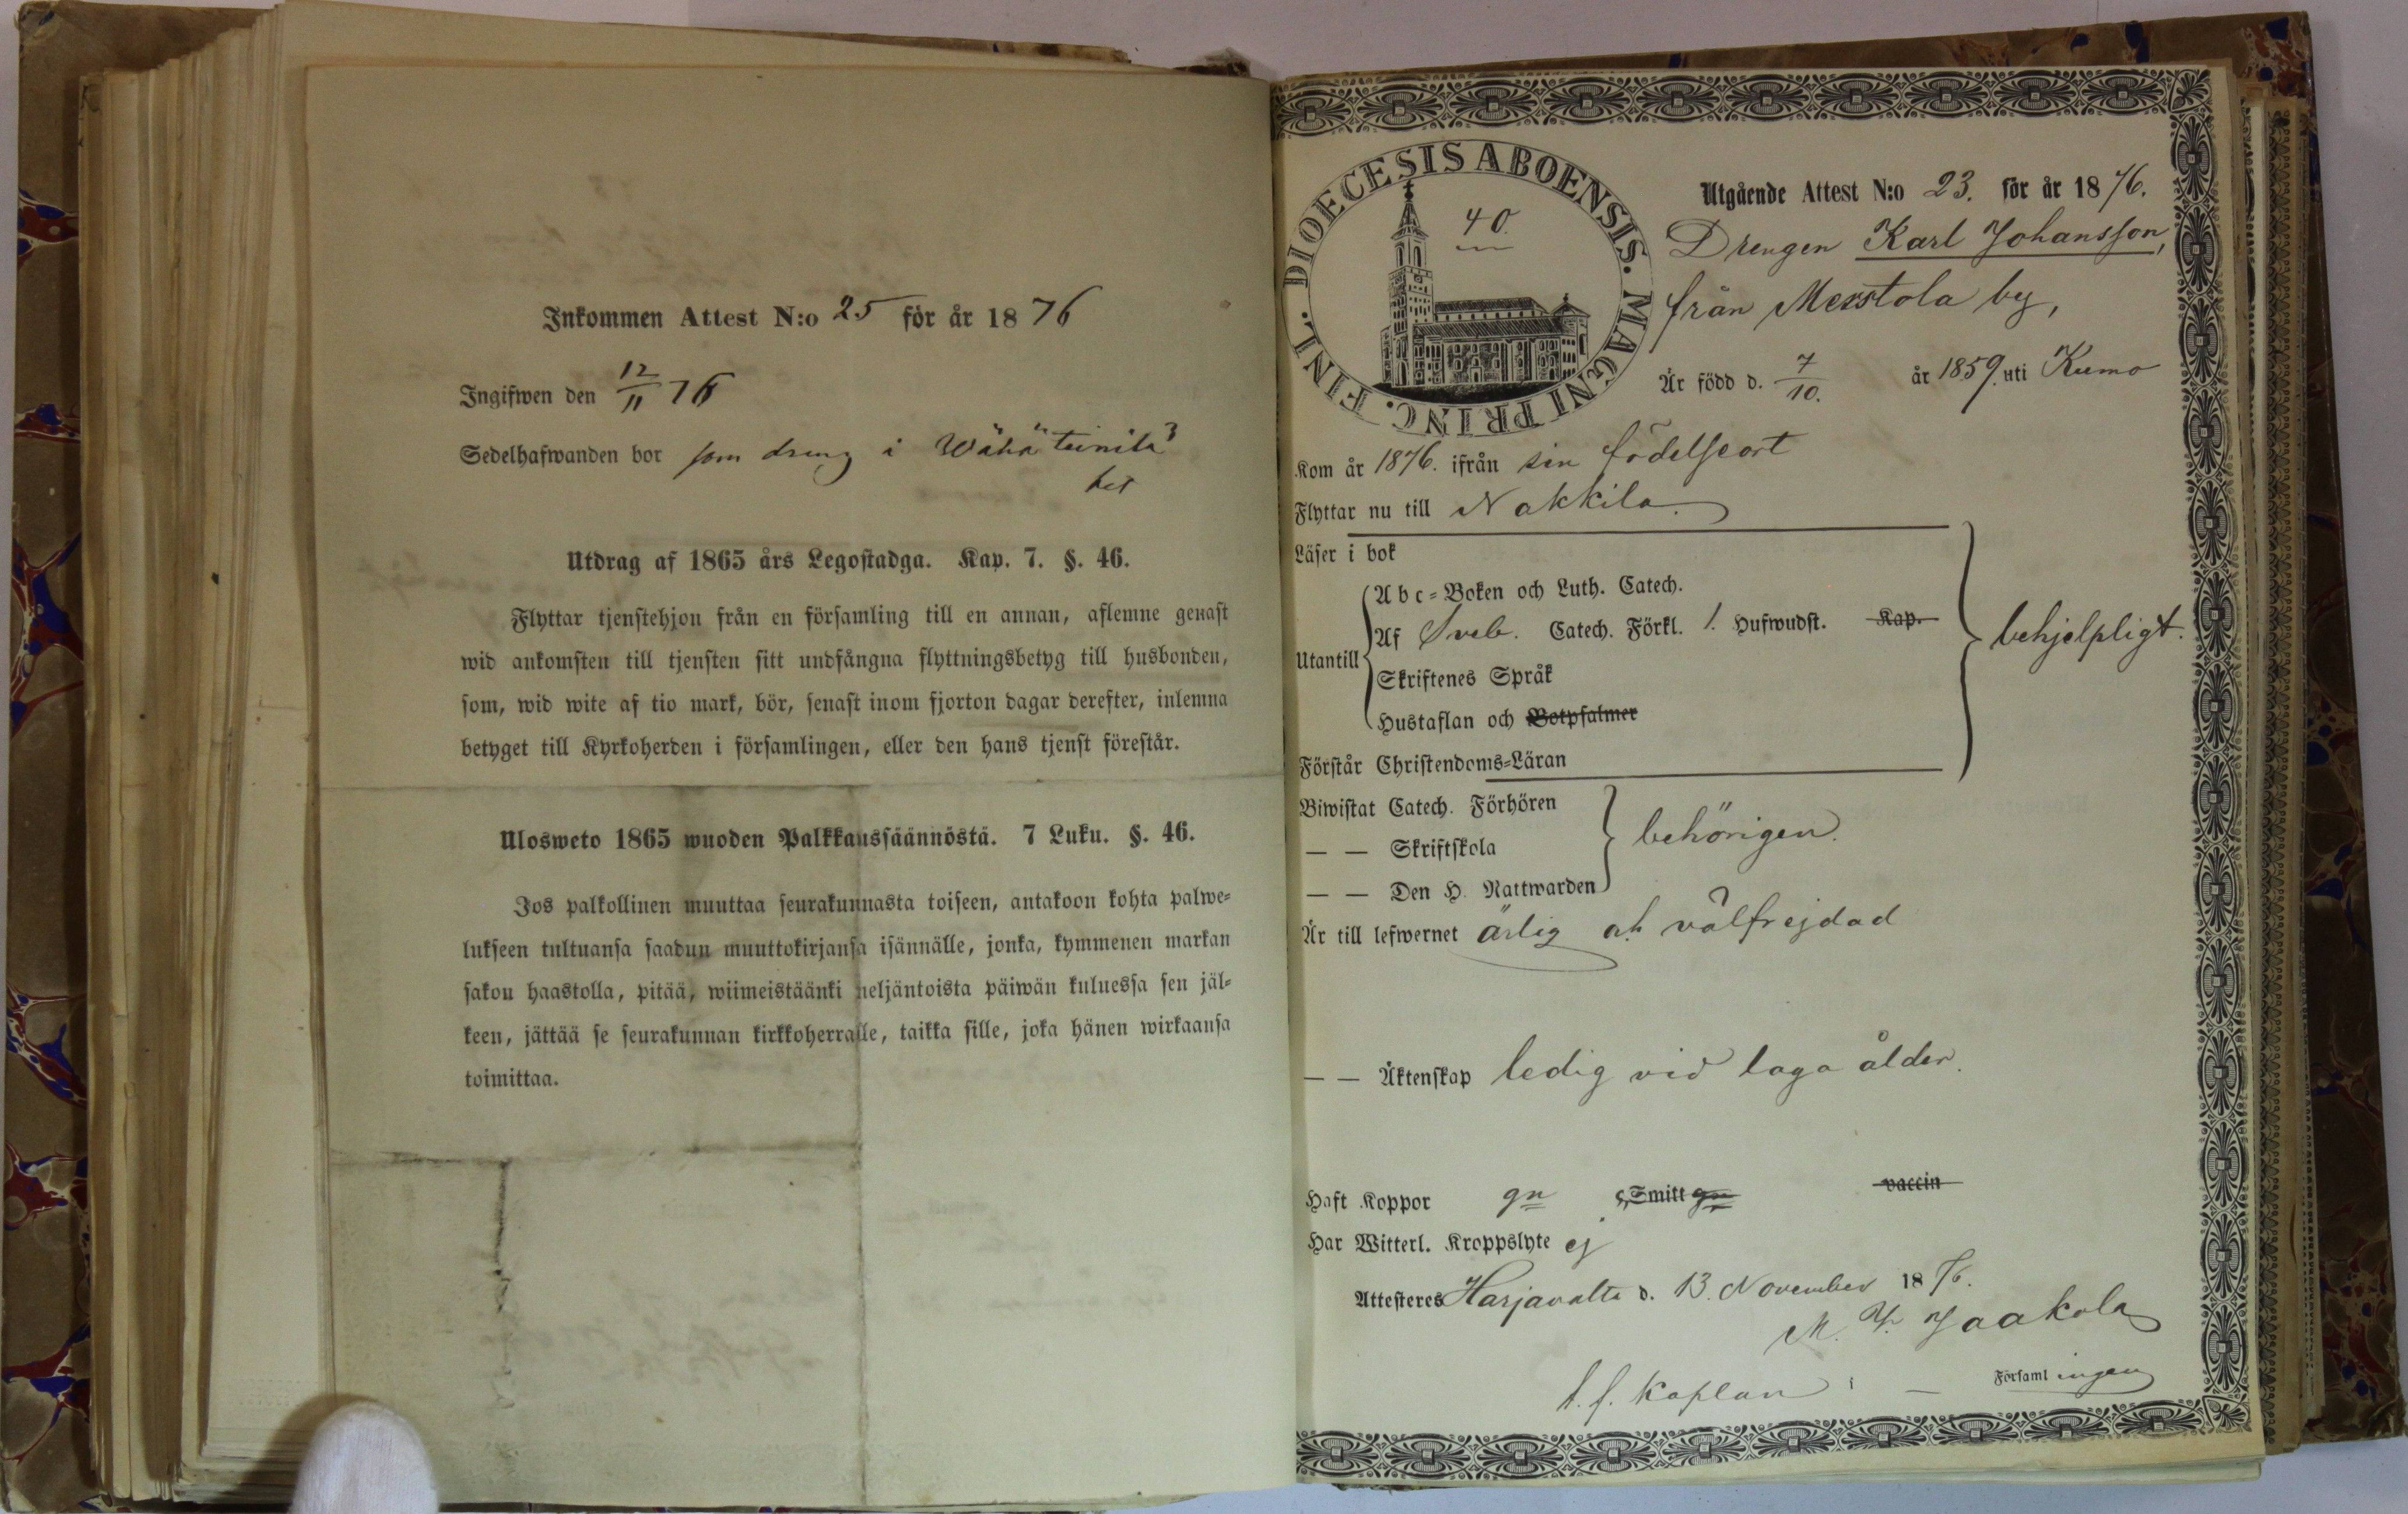 Inkommen Attest N:o 25 för år 1876
Ingifwen den 12/11 76
Sedelhafwanden bor som dreng i Wähäteinilä
Utdrag af 1865 års Legostadga. Kap. 7. §. 46.
Flyttar tjenstehjon från en församling till en annan, aflemne genast
wid ankomsten till tjensten sitt undfångna flyttningsbetyg till husbonden,
som, wid wite af tio mark, bör, senast inom fjorton dagar derefter, inlemna
betyget till Kyrkoherden i församlingen, eller den hans tjenst förestår.
Ulosweto 1865 wuoden Palkkaussäännöstä. 7 Luku. §. 46.
Jos palkollinen muuttaa seurakunnasta toiseen, antakoon kohta palwe-
lukseen tultuansa saadun muuttokirjansa isännälle, jonka, kymmenen markan
sakon haastolla, pitää, wiimeistäänki neljäntoista päiwän kuluessa sen jäl-
keen, jättää se seurakunnan kirkkoherralle, taikka sille, joka hänen wirkaansa
toimittaa.
DIOECESIS ABOENSIS. MAGNI PRINC. FINL.
40.
Utgående Attest N:o 23. för år 1876.
Drengen Karl Johansson,
från Merstola by,
Är född d. 7/10. år 1859. uti Kumo
Kom år 1876. ifrån sin födelseort
Flyttar nu till Nakkila.
Läser i bok
Abc-Boken och Luth. Catech.
Utantill
Af Sveb. Catech. Förkl. 1. Hufwudst. Kap.
Skriftenes Språk
Hustaflan och Botpsalmer
Förstår Christendoms-Läran
behjelpligt.
Biwistat Catech. Förhören
— — Skriftskola
— — Den H. Nattwarden
behörigen.
Är till lefwernet ärlig och välfrejdad
— — Äktenskap ledig vid laga ålder.
Haft Koppor gn Smitt gn vaccin
Har Witterl. Kroppslyte ej
Attesteres Harjavalta d. 13. November 1876.
M. Y. Jaakola
t. f. Kaplan i — Församlingen